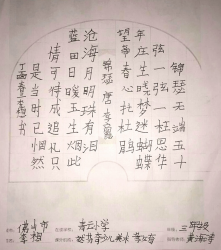 锦瑟无端五十
弦一弦一柱思华
年庄生晓梦迷蝴蝶
望帝春心托杜鹃
锦瑟 唐 李商隐
沧海月明珠有泪
蓝田日暖玉生烟此
情可待成追忆只
是当时已惘然
小学
三年级